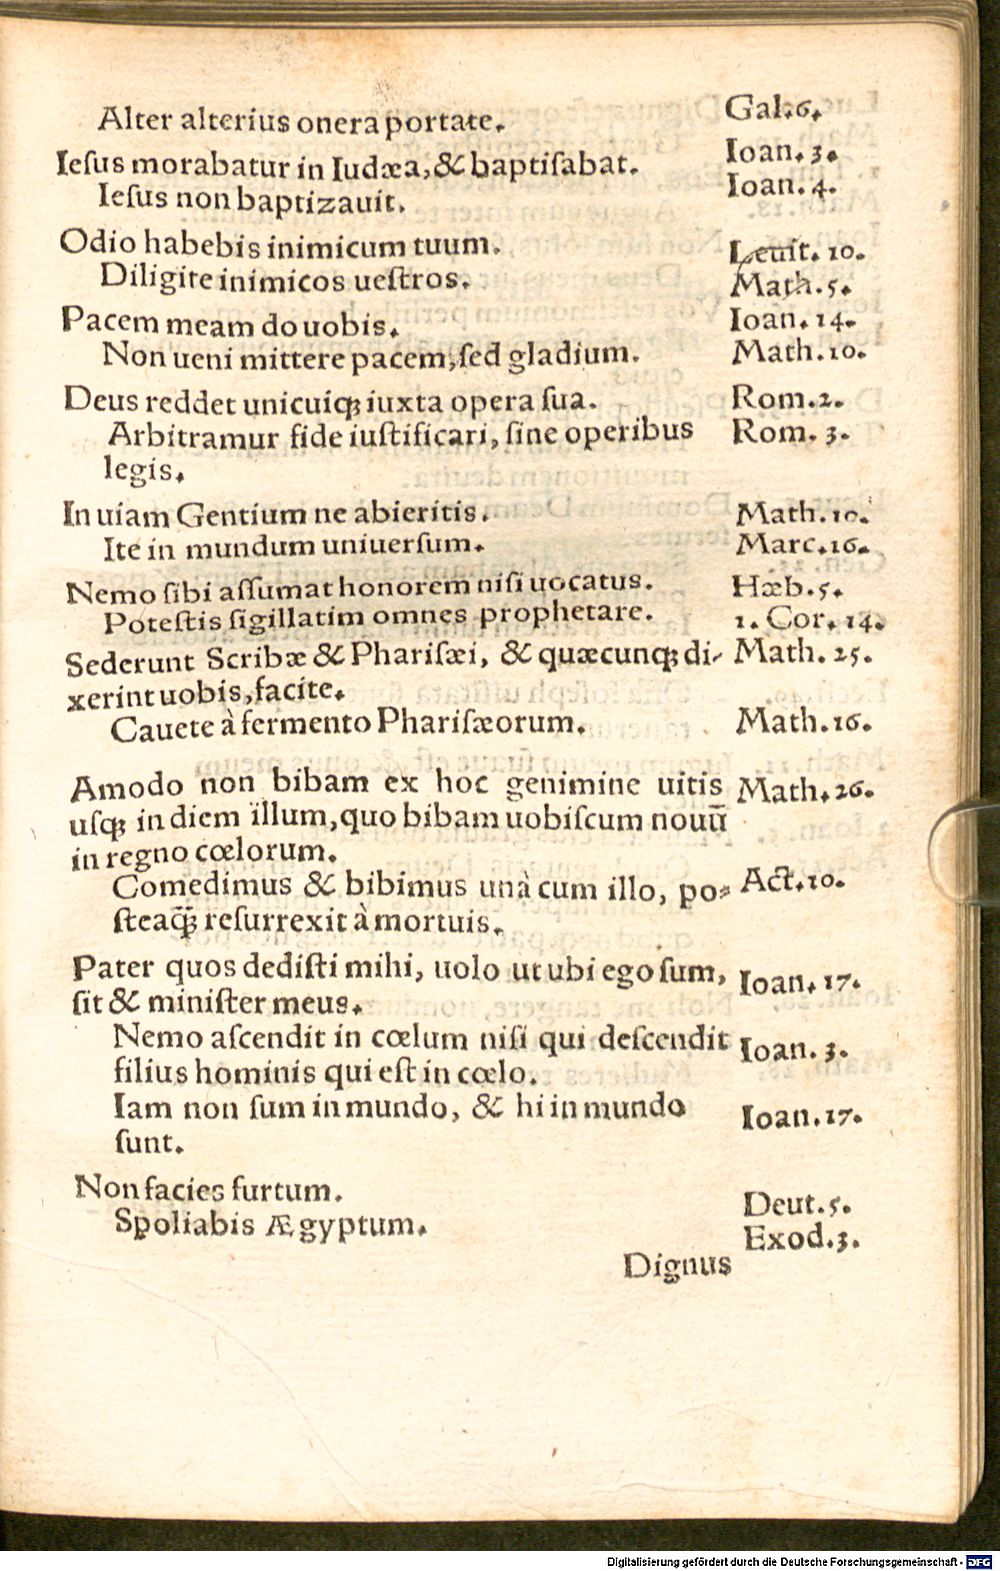 Alter alterius onera portate. Gal.6.
Iesus morabatur in Iudæa, & baptiſabat. Ioan. 3.
Iesus non baptizauit. Ioan. 4.
Odio habebis inimicum tuum. Leuit. 10.
Diligite inimicos ueſtros. Math. 5.
Pacem meam do uobis. Ioan. 14.
Non ueni mittere pacem, ſed gladium. Math. 10.
Deus reddet unicuiqꝫ iuxta opera ſua. Rom. 2.
Arbitramur fide iuſtificari, ſine operibus Rom. 3.
legis.
In uiam Gentium ne abieritis. Math. 10.
Ite in mundum uniuerſum. Marc. 16.
Nemo ſibi aſſumat honorem niſi uocatus. Hæb. 5.
Poteſtis ſigillatim omnes prophetare. 1. Cor. 14.
Sederunt Scribæ & Phariſæi, & quæcunqꝫ di- Math. 25.
xerint uobis, facite.
Cauete à fermento Phariſæorum. Math. 16.
Amodo non bibam ex hoc genimine uitis Math. 26.
uſqꝫ in diem illum, quo bibam uobiſcum nouū
in regno cœlorum.
Comedimus & bibimus unà cum illo, po- Act. 10.
ſteaq̃ꝫ reſurrexit à mortuis.
Pater quos dediſti mihi, uolo ut ubi ego ſum, Ioan. 17.
ſit & miniſter meus.
Nemo aſcendit in cœlum niſi qui deſcendit Ioan. 3.
filius hominis qui eſt in cœlo.
Iam non ſum in mundo, & hi in mundo Ioan. 17.
ſunt.
Non facies furtum. Deut. 5.
Spoliabis Ægyptum. Exod. 3.
Dignus
Digitalisierung gefördert durch die Deutsche Forschungsgemeinschaft - DFG